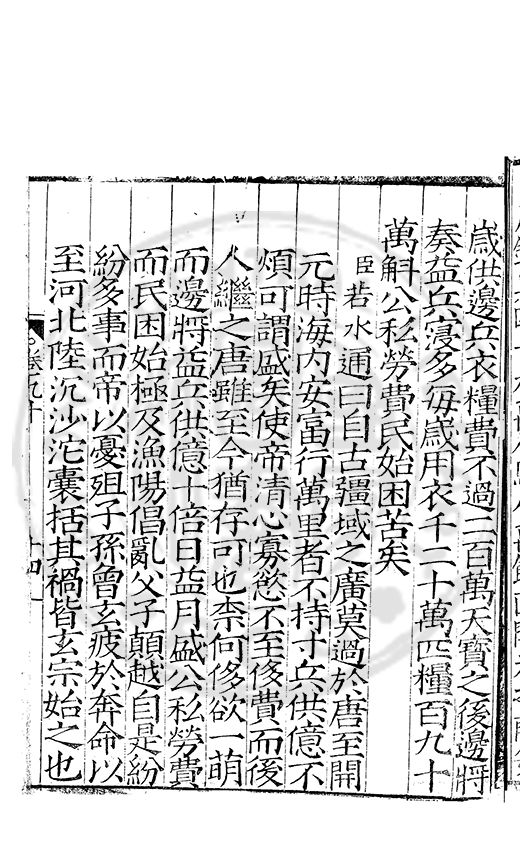 歳供邊兵衣糧費不過二百萬天寳之後邊將
奏益兵寖多毎歳用衣千二十萬匹糧百九十
萬斛公私勞費民始困苦矣
臣若水通曰自古疆域之廣莫過於唐至開
元時海内安富行萬里者不持寸兵供億不
煩可謂盛矣使帝清心寡慾不至侈費而後
人繼之唐雖至今猶存可也柰何侈欲一萌
而邊將益兵供億十倍日益月盛公私勞費
而民困始極及漁陽倡亂父子顛越自是紛
紛多事而帝以憂殂子孫曾玄疲於奔命以
至河北陸沉沙沱囊括其禍皆玄宗始之也
卷九十
十四